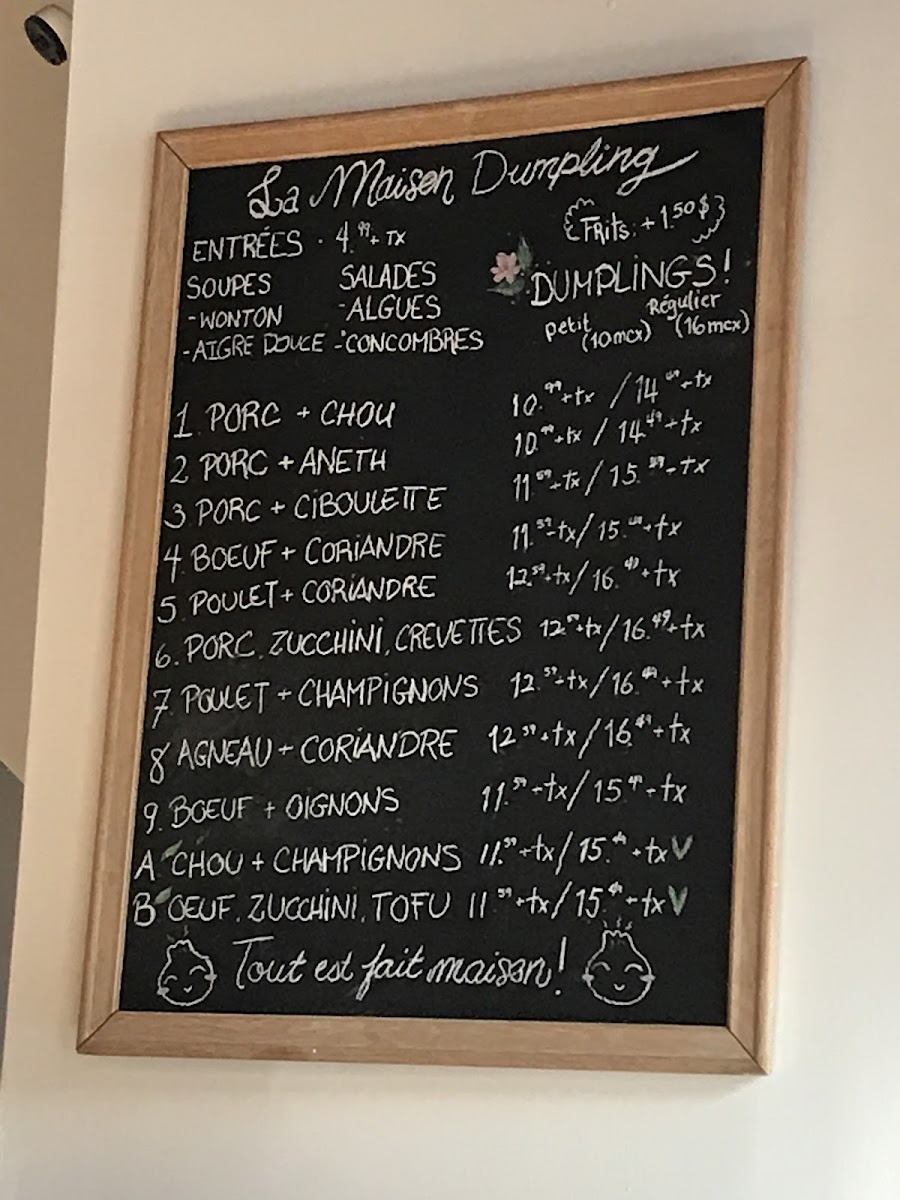 La Maison Dumpling
ENTRÉES · 4.99 + TX
Frits: + 1.50$
SOUPES SALADES
- WONTON - ALGUES
- AIGRE DOUCE - CONCOMBRES
DUMPLINGS!
petit (10mcx) Régulier (16mcx)
1. PORC + CHOU 10.99 + tx / 14.49 + tx
2 PORC + ANETH 10.99 + tx / 14.49 + tx
3 PORC + CIBOULETTE 11.59 + tx / 15. + tx
4. BOEUF + CORIANDRE 11.59 + tx / 15. + tx
5 POULET + CORIANDRE 12.59 + tx / 16.49 + tx
6. PORC, ZUCCHINI, CREVETTES 12.59 + tx / 16.49 + tx
7. POULET + CHAMPIGNONS 12.59 + tx / 16.49 + tx
8 AGNEAU + CORIANDRE 12.59 + tx / 16.49 + tx
9. BOEUF + OIGNONS 11.59 + tx / 15.49 + tx
A CHOU + CHAMPIGNONS 11.59 + tx / 15.49 + tx V
B OEUF, ZUCCHINI, TOFU 11.59 + tx / 15.49 + tx V
Tout est fait maison!